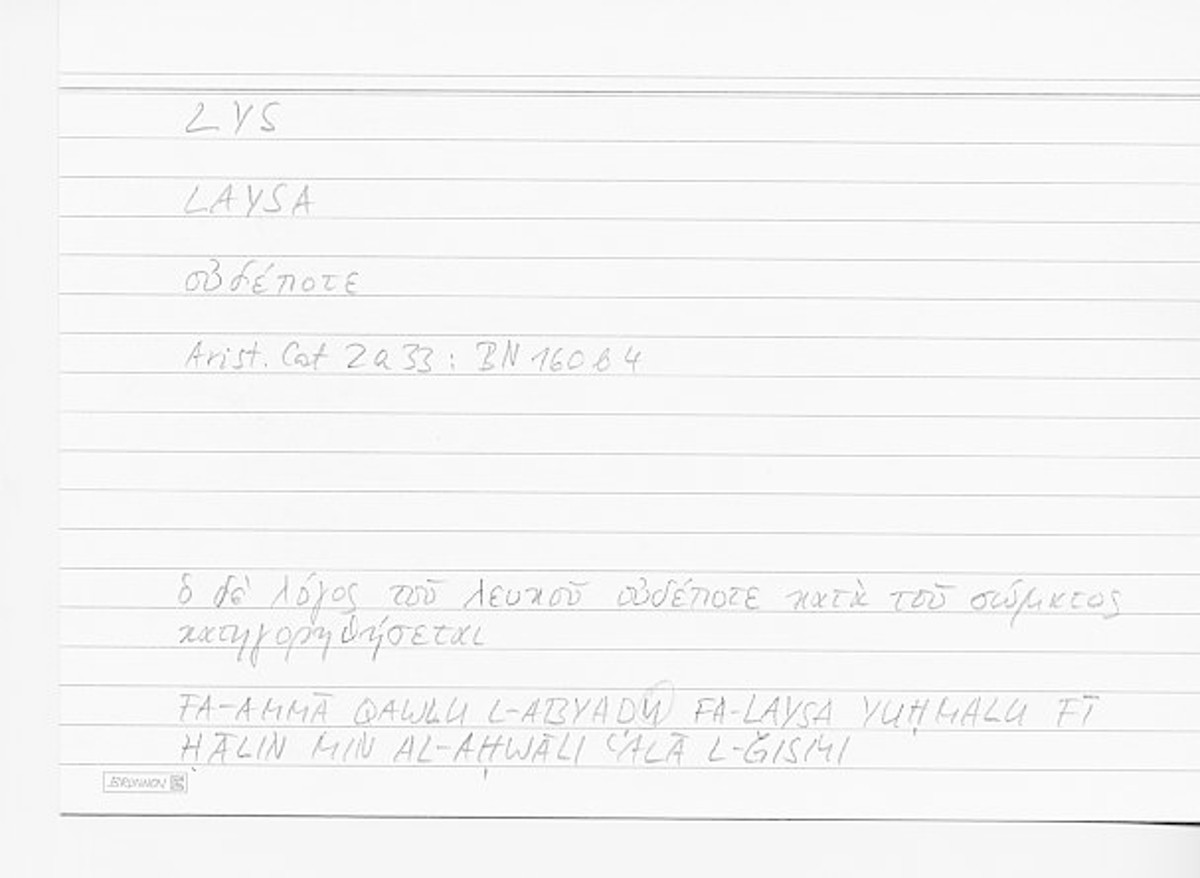 LYS
LAYSA
οὐδέποτε
Arist. Cat 2a33 : BN 160b4
ὁ δὲ λόγος τοῦ λευκοῦ οὐδέποτε κατὰ τοῦ σώματος
κατηγορηθήσεται
FA-AMMĀ QAWLU L-ABYAḌU FA-LAYSA YUḤMALU FĪ
ḤĀLIN MIN AL-AḤWĀLI ʿALĀ L-ǦISMI
BRUNNEN